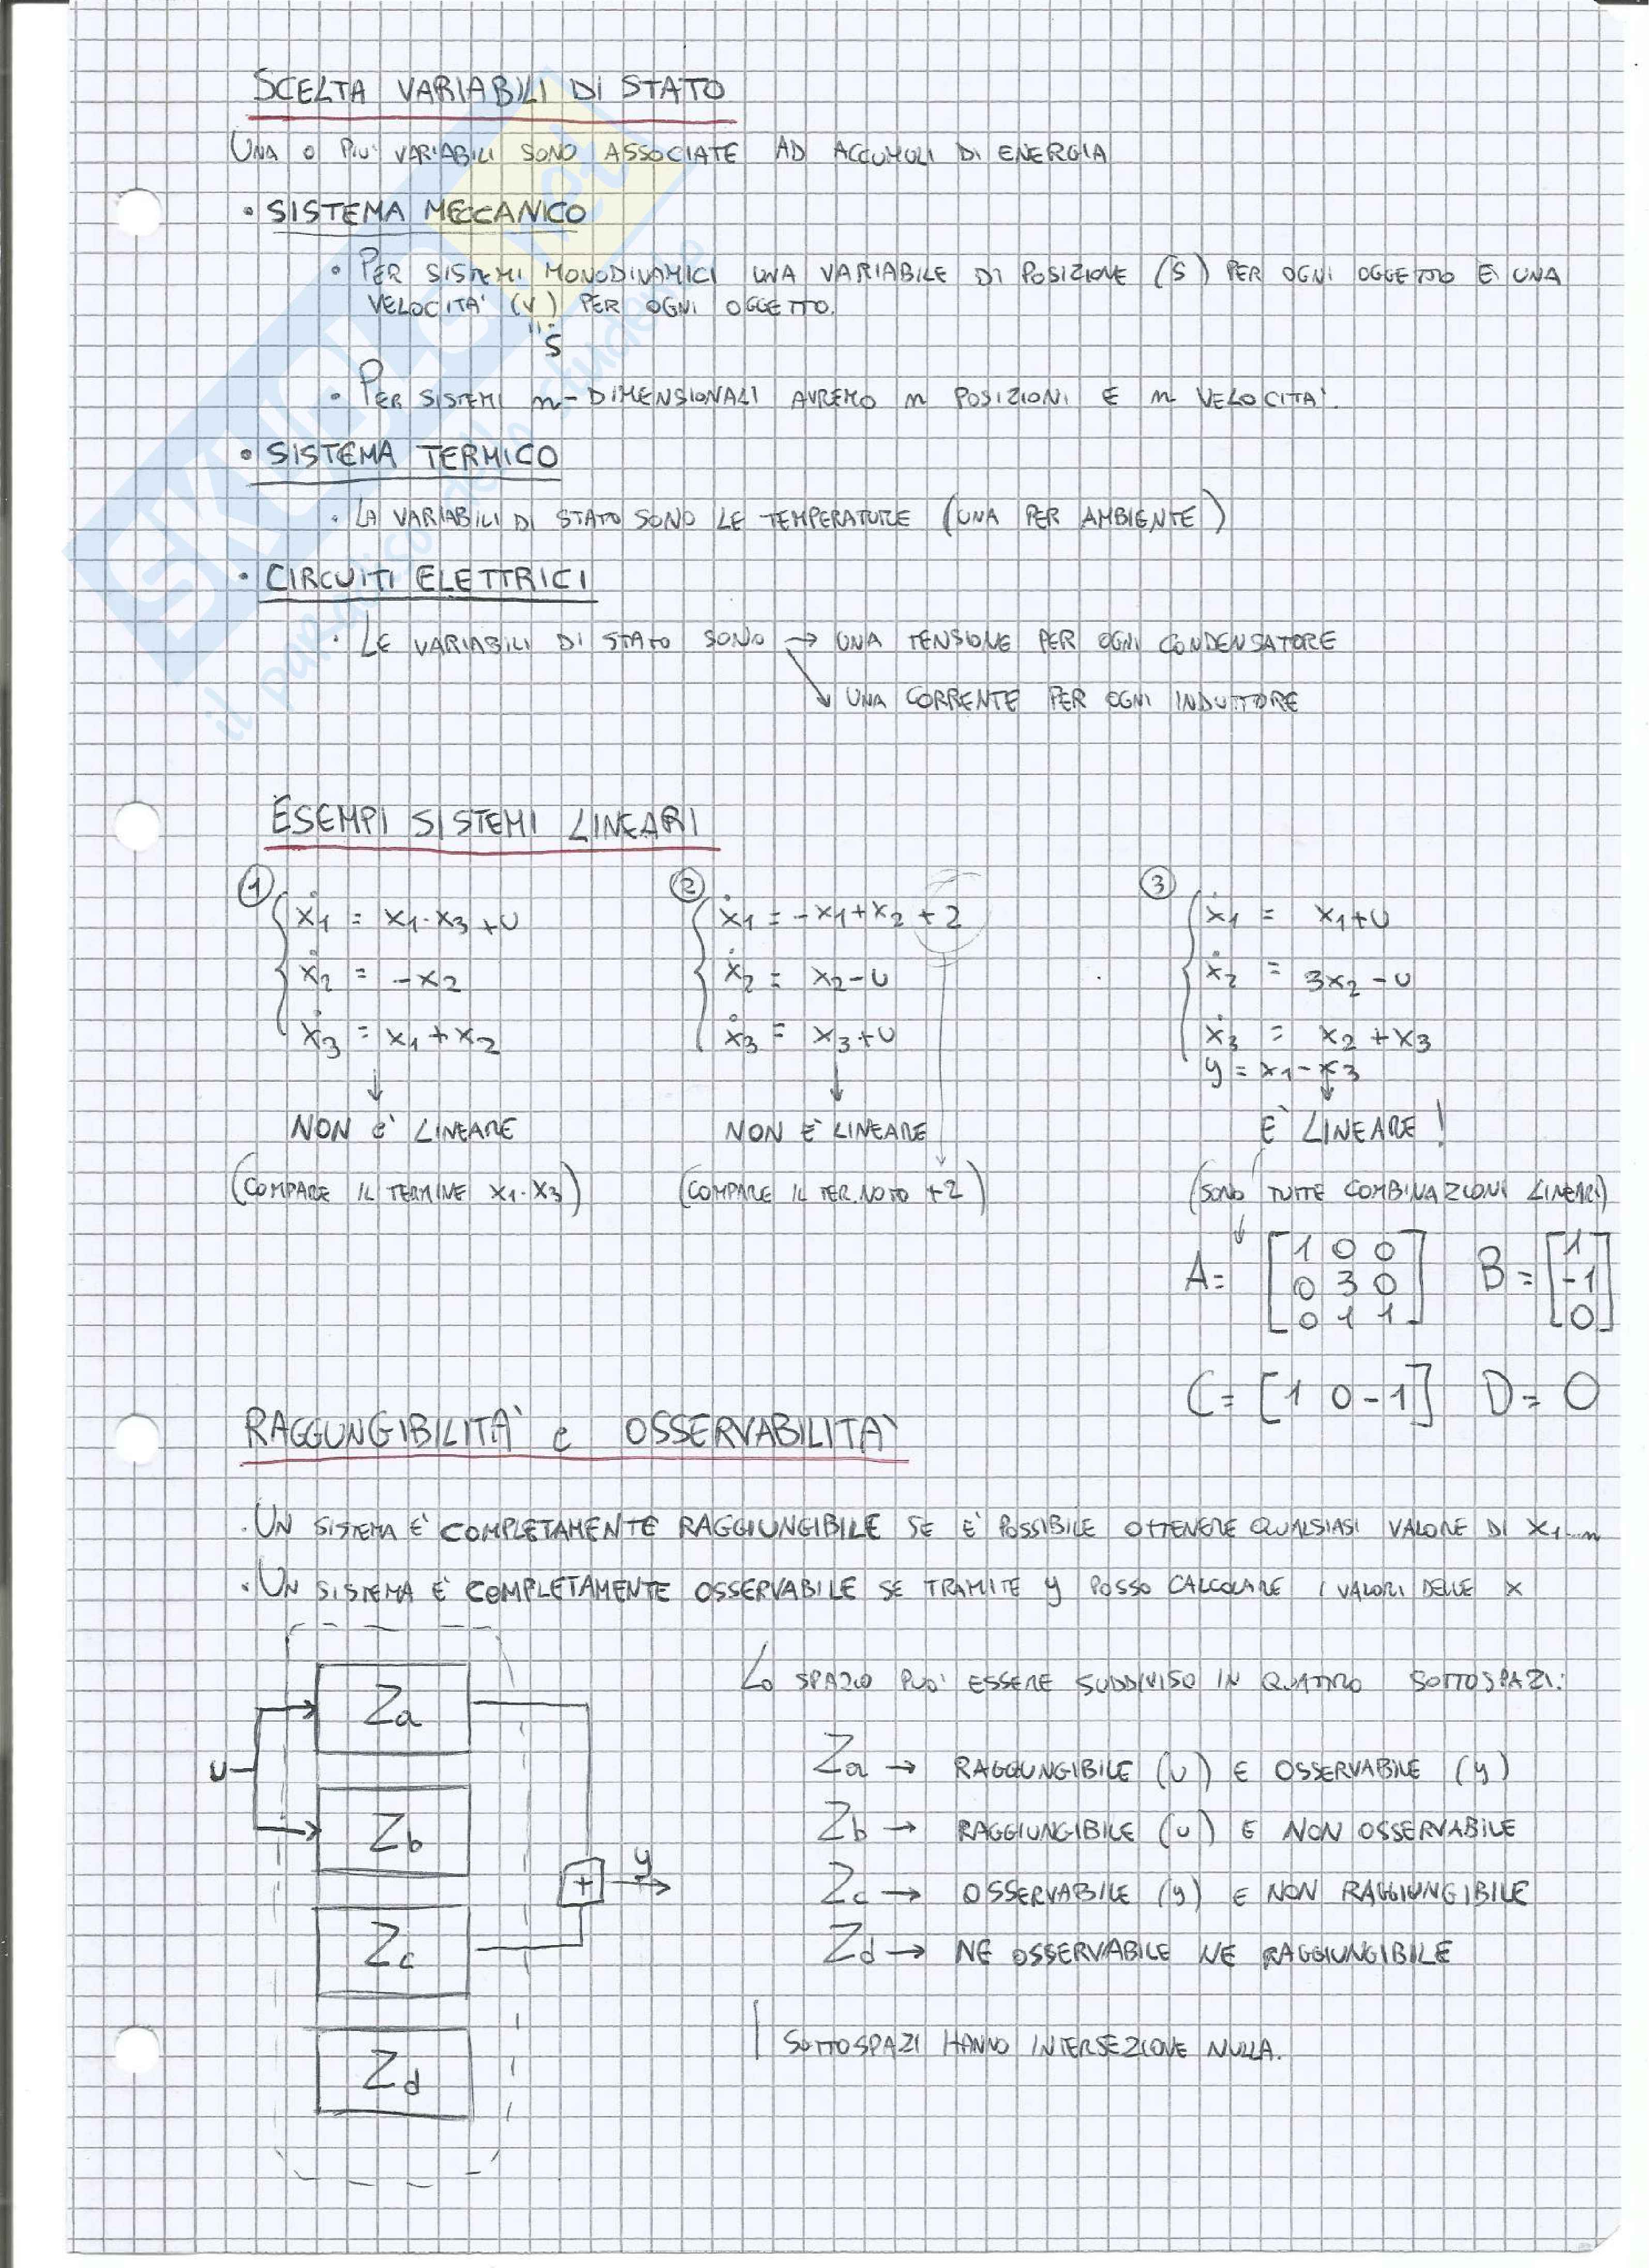 SCELTA VARIABILI DI STATO
UNA O PIU' VARIABILI SONO ASSOCIATE AD ACCUMULI DI ENERGIA
• SISTEMA MECCANICO
• PER SISTEMI MONODINAMICI UNA VARIABILE DI POSIZIONE (S) PER OGNI OGGETTO E UNA
VELOCITA' (V) PER OGNI OGGETTO.
" Ṡ
• PER SISTEMI n-DIMENSIONALI AVREMO n POSIZIONI E n VELOCITA'.
• SISTEMA TERMICO
• LA VARIABILI DI STATO SONO LE TEMPERATURE (UNA PER AMBIENTE)
• CIRCUITI ELETTRICI
• LE VARIABILI DI STATO SONO → UNA TENSIONE PER OGNI CONDENSATORE
↘ UNA CORRENTE PER OGNI INDUTTORE
ESEMPI SISTEMI LINEARI
① ② ③
ẋ1 = x1·x3+U ẋ1 = -x1+x2+2 ẋ1 = x1+U
ẋ2 = -x2 ẋ2 = x2-U ẋ2 = 3x2-U
ẋ3 = x1+x2 ẋ3 = x3+U ẋ3 = x2+x3
y = x1-x3
↓ ↓ ↓
NON è LINEARE NON È LINEARE È LINEARE!
(COMPARE IL TERMINE x1·x3) (COMPARE IL TER. NOTO +2) (SONO TUTTE COMBINAZIONI LINEARI)
A= [1 0 0 B= [1
0 3 0 -1
0 1 1] 0]
C= [1 0 -1] D= 0
RAGGUNGIBILITA' e OSSERVABILITA'
• UN SISTEMA E' COMPLETAMENTE RAGGIUNGIBILE SE E' POSSIBILE OTTENERE QUALSIASI VALORE DI x1...n
• UN SISTEMA E' COMPLETAMENTE OSSERVABILE SE TRAMITE y POSSO CALCOLARE I VALORI DELLE X
LO SPAZIO PUO' ESSERE SUDDIVISO IN QUATTRO SOTTOSPAZI:
Za
Za → RAGGUNGIBILE (U) E OSSERVABILE (y)
U
Zb
Zb → RAGGIUNGIBILE (U) E NON OSSERVABILE
+ y
Zc → OSSERVABILE (y) E NON RAGGIUNGIBILE
Zc
Zd → NE OSSERVABILE NE RAGGIUNGIBILE
I SOTTOSPAZI HANNO INTERSEZIONE NULLA.
Zd
SKUOLA.net
il paradiso dello studente